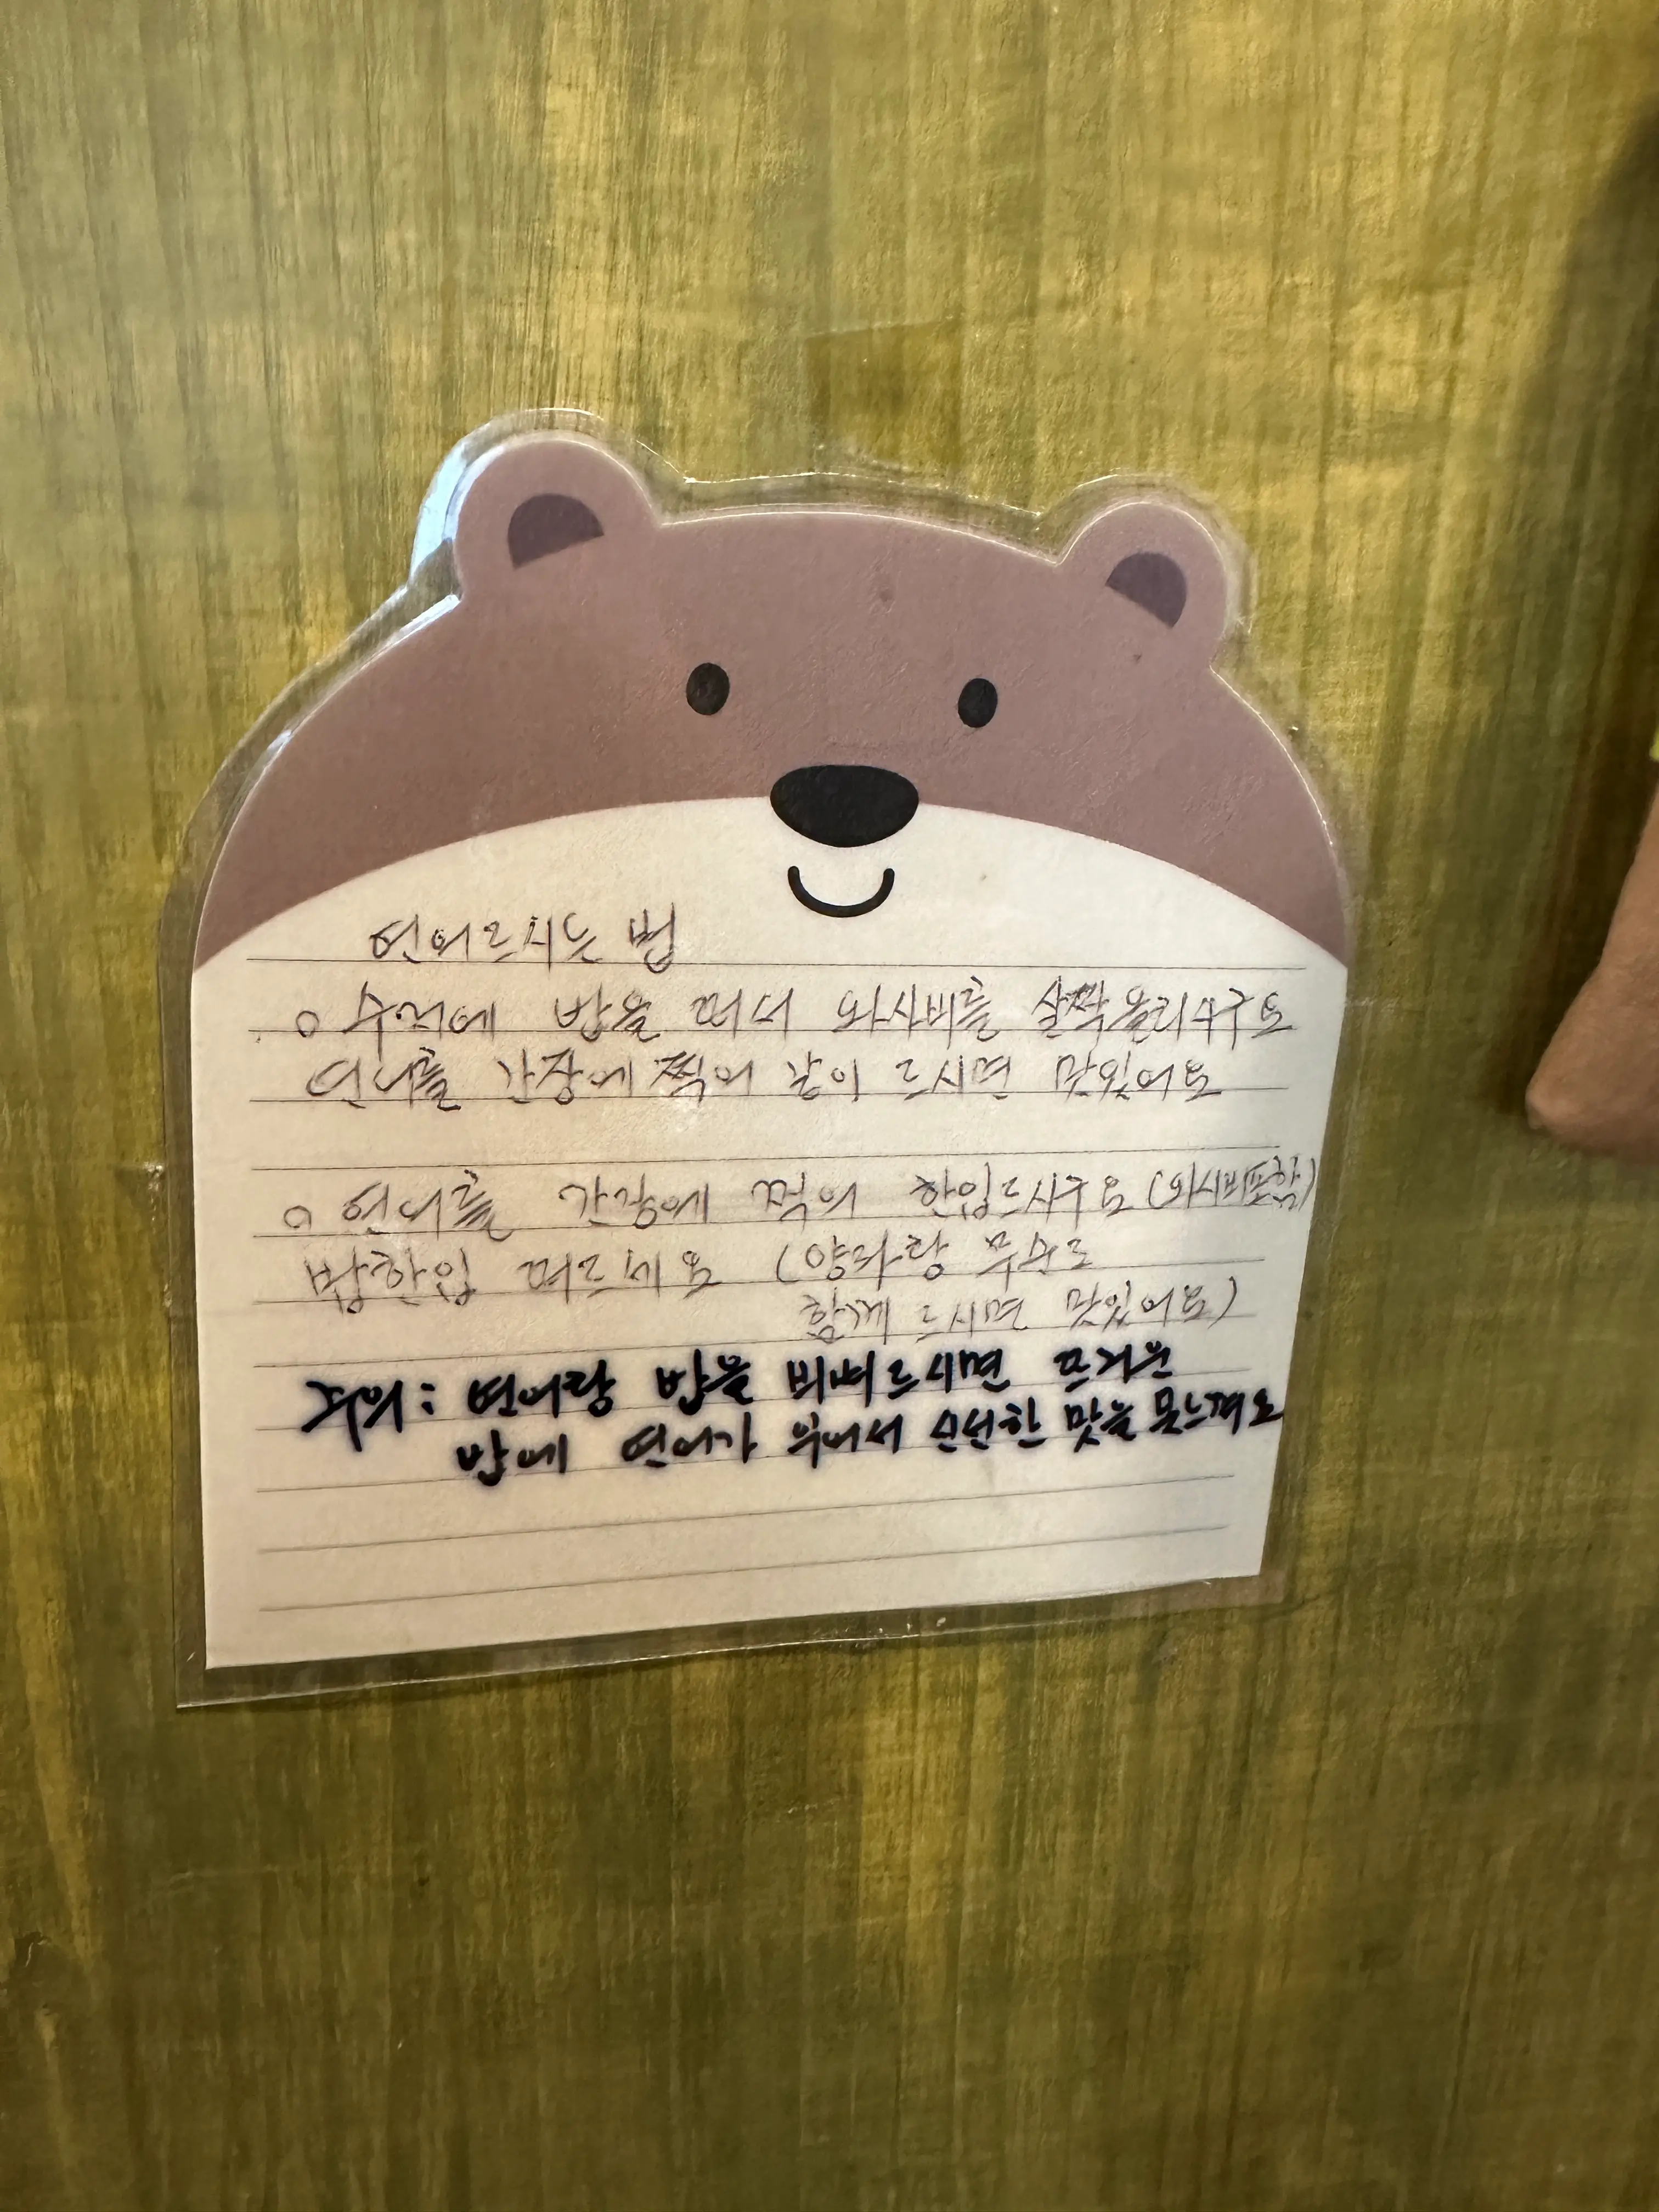 연어드시는 법
o 수저에 밥을 떠서 와사비를 살짝올리시구요
연어를 간장에 찍어 같이 드시면 맛있어요
o 연어를 간장에 찍어 한입드시구요 (와사비포함)
밥한입 떠드세요 (양파랑 무순도
함께 드시면 맛있어요)
주의: 연어랑 밥을 비벼드시면 뜨거운
밥에 연어가 익어서 신선한 맛을 못느껴요